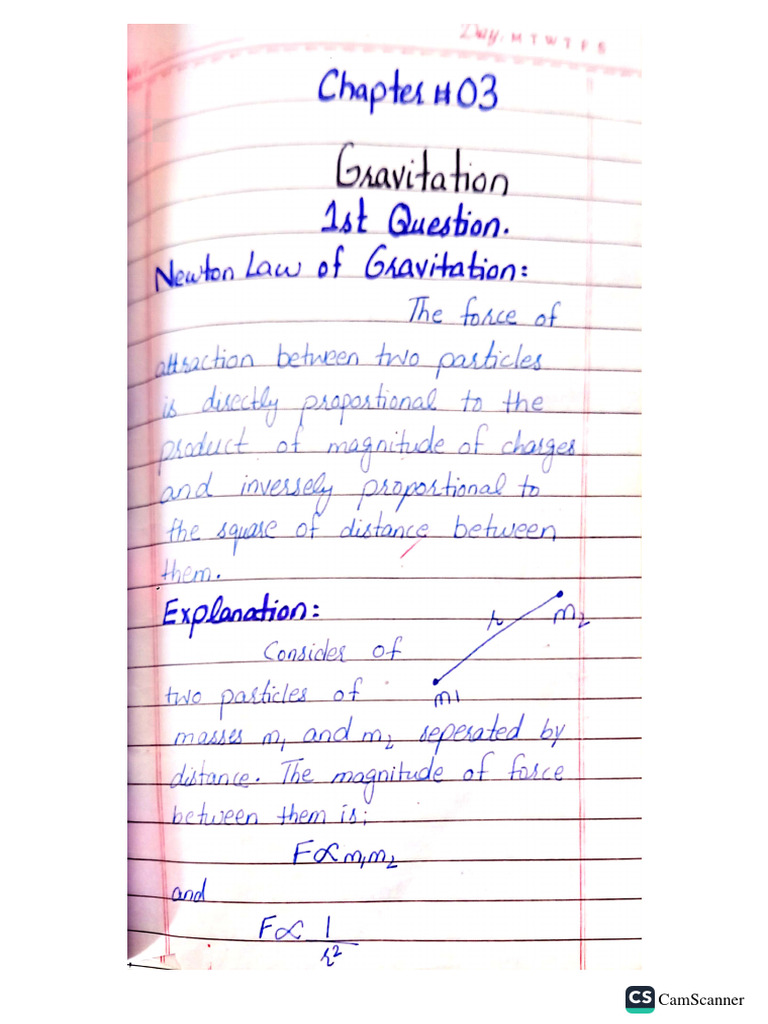 Day. M T W T F S
Chapter # 03
Gravitation
1st Question.
Newton Law of Gravitation:
The force of
attraction between two particles
is directly proportional to the
product of magnitude of charges
and inversely proportional to
the square of distance between
them.
Explanation:
r m2
Consider of
two particles of m1
masses m1 and m2 seperated by
distance. The magnitude of force
between them is;
F∝m1m2
and
F∝ 1
r²
CS CamScanner